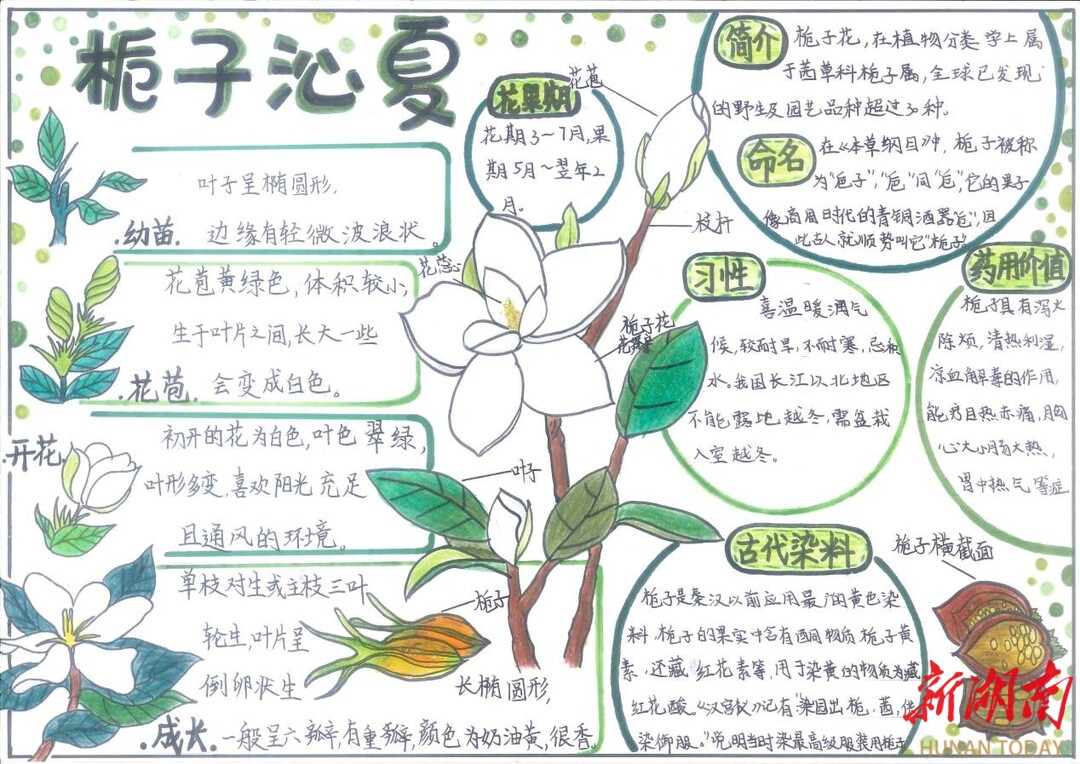 栀子沁夏
叶子呈椭圆形,
边缘有轻微波浪状。
.幼苗.
花苞黄绿色,体积较小,
生于叶片之间,长大一些
会变成白色。
.花苞.
开花.
初开的花为白色,叶色翠绿,
叶形多变,喜欢阳光充足
且通风的环境。
单枝对生或主枝三叶
轮生,叶片呈
倒卵状生
长椭圆形,
.成长.
一般呈六瓣,有重瓣,颜色为奶油黄,很香。
花果期
花期3~7月,果
期5月~翌年2
月。
花苞
枝杆
花蕊
栀子花
叶子
栀子
简介
栀子花,在植物分类学上属
于茜草科栀子属,全球已发现
的野生及园艺品种超过30种。
命名
在《本草纲目》中,栀子被称
为"卮子","卮"同"卮",它的果子
像商周时代的青铜酒器卮",因
此古人就顺势叫它"栀子"
习性
喜温暖湿气
候,较耐旱,不耐寒,忌积
水。我国长江以北地区
不能露地越冬,需盆栽
入室越冬。
药用价值
栀子具有泻火
除烦,清热利湿,
凉血解毒的作用,
能疗目热赤痛,胸
心大小肠大热,
胃中热气等症
古代染料
栀子是秦汉以前应用最广的黄色染
料.栀子的果实中含有酉同物质栀子黄
素,还藏红花素等,用于染黄的物质为藏
红花酸。《汉宫仪》记有"染园出栀,茜,供
染御服。"说明当时染最高级服装用栀子
栀子横截面
新湖南
HUNAN TODAY